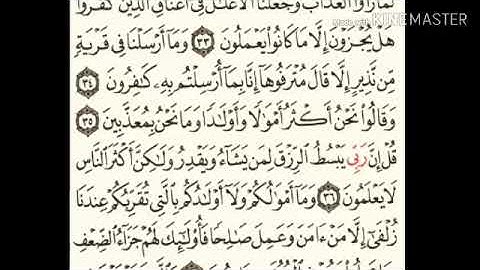 لَمَّا رَأَوُا۟ ٱلْعَذَابَ وَجَعَلْنَا ٱلْأَغْلَٰلَ فِىٓ أَعْنَاقِ ٱلَّذِينَ كَفَرُوا۟
هَلْ يُجْزَوْنَ إِلَّا مَا كَانُوا۟ يَعْمَلُونَ ٣٣ وَمَآ أَرْسَلْنَا فِى قَرْيَةٍ
مِّن نَّذِيرٍ إِلَّا قَالَ مُتْرَفُوهَآ إِنَّا بِمَآ أُرْسِلْتُم بِهِۦ كَٰفِرُونَ ٣٤
وَقَالُوا۟ نَحْنُ أَكْثَرُ أَمْوَٰلًا وَأَوْلَٰدًا وَمَا نَحْنُ بِمُعَذَّبِينَ ٣٥
قُلْ إِنَّ رَبِّى يَبْسُطُ ٱلرِّزْقَ لِمَن يَشَآءُ وَيَقْدِرُ وَلَٰكِنَّ أَكْثَرَ ٱلنَّاسِ
لَا يَعْلَمُونَ ٣٦ وَمَآ أَمْوَٰلُكُمْ وَلَآ أَوْلَٰدُكُم بِٱلَّتِى تُقَرِّبُكُمْ عِندَنَا
زُلْفَىٰٓ إِلَّا مَنْ ءَامَنَ وَعَمِلَ صَٰلِحًا فَأُو۟لَٰٓئِكَ لَهُمْ جَزَآءُ ٱلضِّعْفِ
Made with KINEMASTER